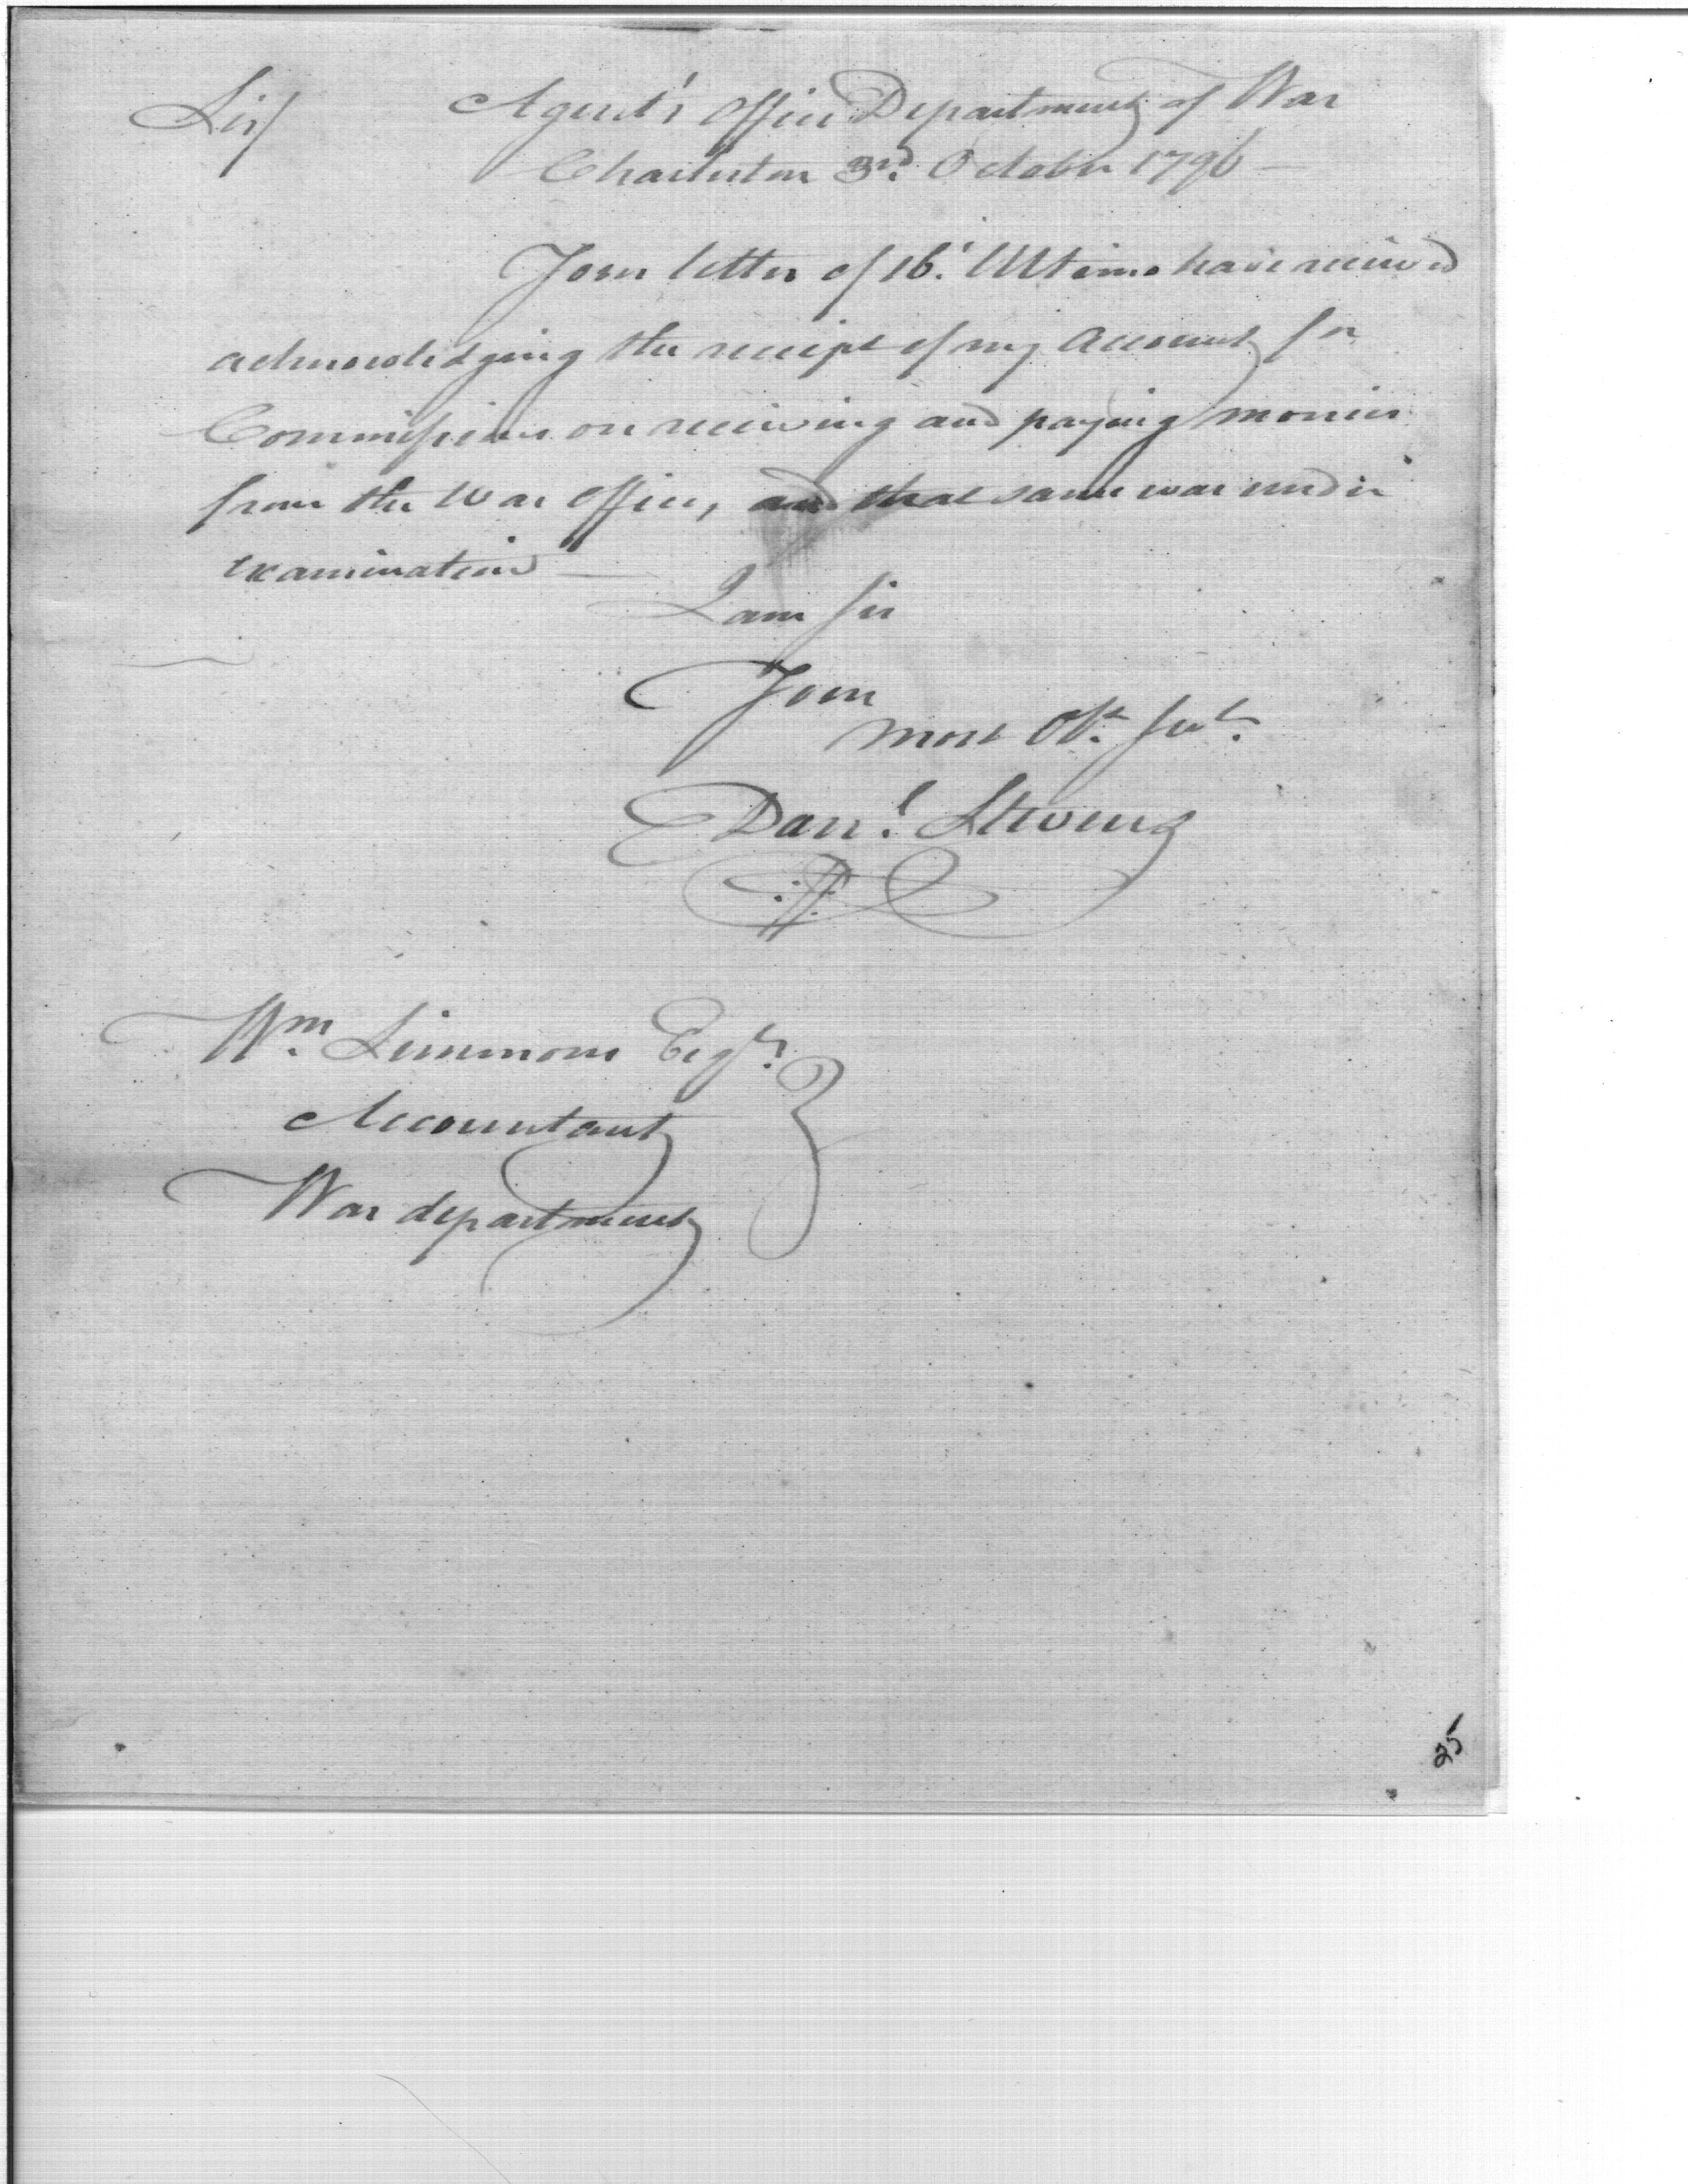 Sir/ Agent's Office Department of War
Charleston 3rd. October 1796 —
Your letter of 16.' Ultimo have received
acknowledging the receipt of my Account for
Commissions on receiving and paying monies
from the War Office, and that same was under
examination —
I am Sir
Your
most Obt. Servt.
Danl. Stevens
Wm. Simmons Esqr.
Accountant
War department
25